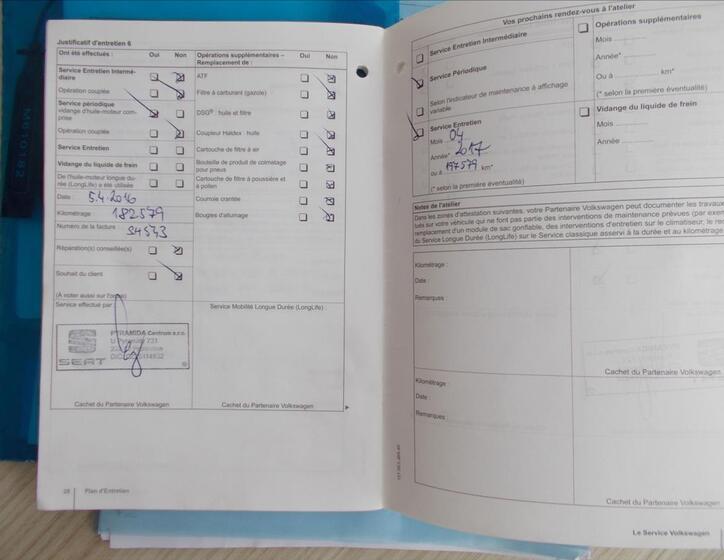 Justificatif d'entretien 6
Ont été effectués : Oui Non
Service Entretien Intermé-
diaire
Opération couplée
Service périodique
vidange d'huile-moteur com-
prise
Opération couplée
Service Entretien
Vidange du liquide de frein
De l'huile-moteur longue du-
rée (LongLife) a été utilisée
Date : 5.4.2016
Kilométrage : 182579
Numéro de la facture :
Réparation(s) conseillée(s)
Souhait du client
(À noter aussi sur l'ordre)
Service effectué par :
PYRAMIDA Centrum s.r.o.
SEAT
Cachet du Partenaire Volkswagen
Opérations supplémentaires – Oui Non
Remplacement de :
ATF
Filtre à carburant (gazole)
DSG® : huile et filtre
Coupleur Haldex : huile
Cartouche de filtre à air
Bouteille de produit de colmatage
pour pneus
Cartouche de filtre à poussière et
à pollen
Courroie crantée
Bougies d'allumage
Service Mobilité Longue Durée (LongLife) :
Cachet du Partenaire Volkswagen
28 Plan d'Entretien
M610182
Vos prochains rendez-vous à l'atelier
Service Entretien Intermédiaire
Service Périodique
Selon l'indicateur de maintenance à affichage
variable
Service Entretien
Mois 04
Année* 2017
ou à 197579 km*
(* selon la première éventualité)
Opérations supplémentaires
Mois
Année*
Ou à km*
(* selon la première éventualité)
Vidange du liquide de frein
Mois
Année
Notes de l'atelier
Dans les zones d'attestation suivantes, votre Partenaire Volkswagen peut documenter les travaux
tués sur votre véhicule qui ne font pas partie des interventions de maintenance prévues (par exem
remplacement d'un module de sac gonflable, des interventions d'entretien sur le climatiseur, le re
du Service Longue Durée (LongLife) sur le Service classique asservi à la durée et au kilométrage
Kilométrage :
Date :
Remarques :
Cachet du Partenaire Volkswagen
Kilométrage :
Date :
Remarques :
Cachet du Partenaire Volkswagen
Le Service Volkswagen